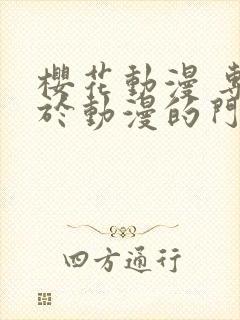 櫻花動漫
於動漫的門
四方通行